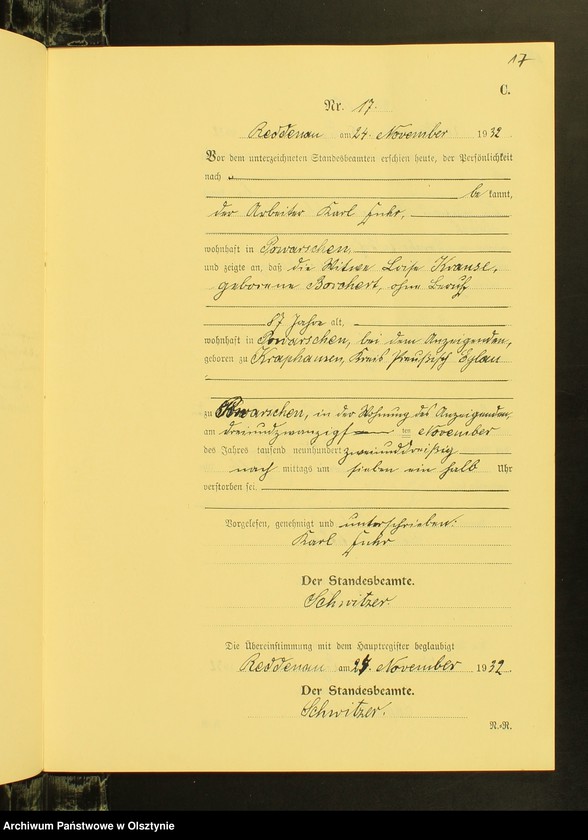 17
C.
Nr. 17.
Reddenau am 24. November 1932.
Vor dem unterzeichneten Standesbeamten erschien heute, der Persönlichkeit
nach
be kannt,
der Arbeiter Karl Fuhr,
wohnhaft in Powarschen,
und zeigte an, daß die Witwe Loise Krause,
geborene Borchert, ohne Beruf
87 Jahre alt,
wohnhaft in Powarschen, bei dem Anzeigenden,
geboren zu Kraphausen, Kreis Preußisch Eylau
zu Powarschen, in der Wohnung des Anzeigenden,
am dreiundzwanzigsten November
des Jahres tausend neunhundert zweiunddreißig
nach mittags um sieben ein halb Uhr
verstorben sei.
Vorgelesen, genehmigt und unterschrieben:
Karl Fuhr
Der Standesbeamte.
Schwitzer.
Die Übereinstimmung mit dem Hauptregister beglaubigt
Reddenau am November 1932.
Der Standesbeamte.
Schwitzer.
R.=R.
Archiwum Państwowe w Olsztynie